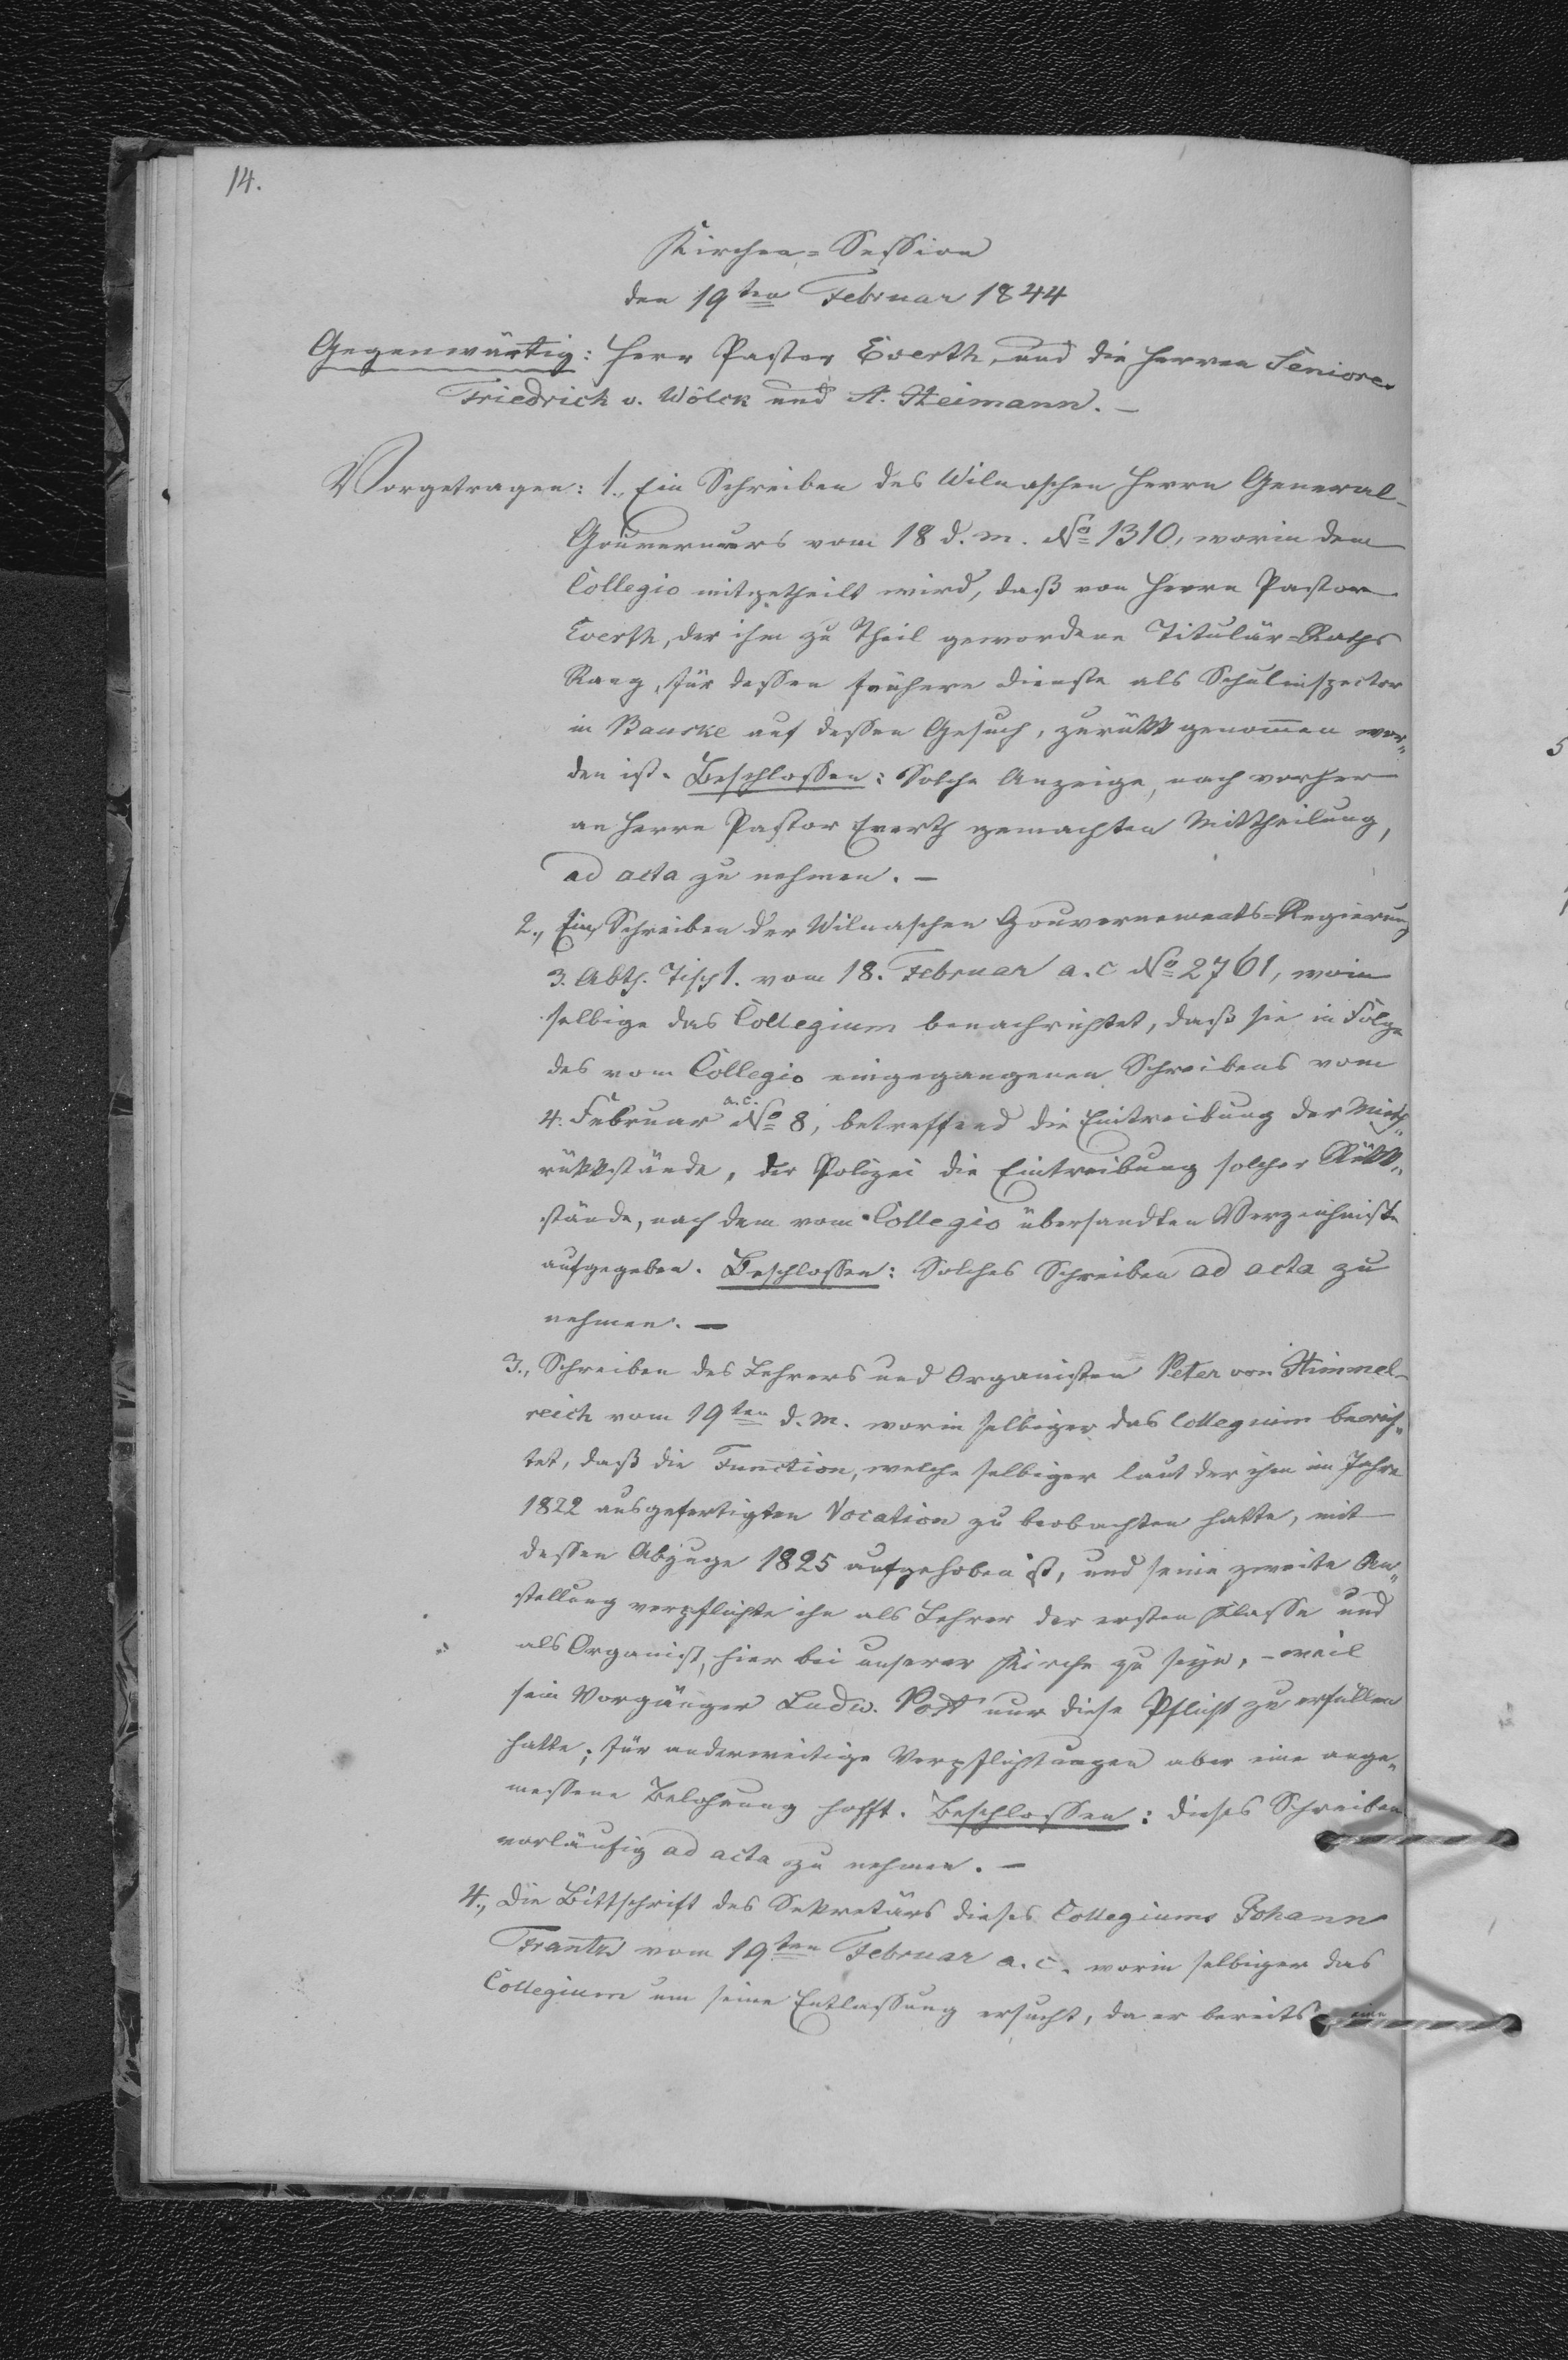 14.
Kirchen=Session
den 19ten Februar 1844
Gegenwärtig: Herr Pastor Everth, und die Herren Seniores
Friedrich v. Wölck und A. Heimann. –
Vorgetragen: 1., Ein Schreiben des Wilnaschen Herrn General-
Gouverneurs vom 18 d. m. No 1310, worin dem
Collegio mitgetheilt wird, daß von Herrn Pastor
Everth, der ihm zu Theil gewordene Titulär=Raths
Rang, für dessen frühere Dienste als Schulinspector
in Bauske auf dessen Gesuch, zurükk genommen wor„
den ist. Beschlossen: Solche Anzeige, nach vorher
an Herrn Pastor Everth gemachten Mittheilung,
ad acta zu nehmen. –
2., Ein Schreiben der Wilnaschen Gouvernements=Regierung
3. Abth. Tisch 1. vom 18. Februar a. c No 2761, worin
selbige das Collegium benachrichtet, daß sie in Folge
des vom Collegio eingegangenen Schreibens vom
4. Februar a. c. No 8, betreffend die Eintreibung der Mieth„
rükkstände, der Polizei die Eintreibung solcher Rükk„
stände, nach dem vom Collegio übersandten Verzeichniße
aufgegeben. Beschlossen: Solches Schreiben ad acta zu
nehmen. –
3., Schreiben des Lehrers und Organisten Peter von Himmel-
reich vom 19ten d. M. worin selbiger das Collegium berich„
tet, daß die Function, welche selbiger laut der ihm im Jahre
1822 ausgefertigten Vocation zu beobachten hatte, mit
dessen Abzuge 1825 aufgehoben ist, und seine zweite An„
stellung verpflichte ihn als Lehrer der ersten Klasse und
als Organist, hier bei unserer Kirche zu seyn, – weil
sein Vorgänger Ludw. Pott nur diese Pflicht zu erfüllen
hatte; für anderweitige Verpflichtungen aber eine ange„
messene Belohnung hofft. Beschlossen: dieses Schreiben
vorläufig ad acta zu nehmen. –
4., Die Bittschrift des Sekretärs dieses Collegiums Johann
Frantz vom 19ten Februar a. c. worin selbiger das
Collegium um seine Entlassung ersucht, da er bereits eine